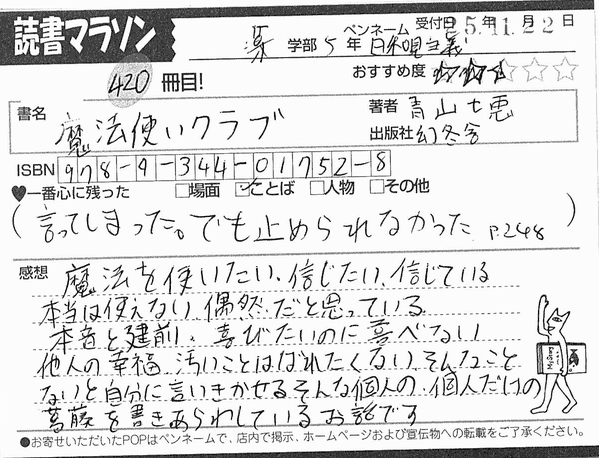 読書マラソン
薬 学部 5 年 ペンネーム 日本唄当義 受付日 25年11月22日
420 冊目!
おすすめ度 ★★★☆☆
書名 魔法使いクラブ
著者 青山七恵
出版社 幻冬舎
ISBN 978-4-344-01752-8
♥一番心に残った □場面 ☑ことば □人物 □その他
(言ってしまった。でも止められなかった P.248)
感想 魔法を使いたい、信じたい、信じている
本当は使えない、偶然だと思っている
本音と建前、喜びたいのに喜べない
他人の幸福、汚いことはばれたくない、そんなこと
ないと自分に言いきかせるそんな個人の、個人だけの
葛藤を書きあらわしているお話です
●お寄せいただいたPOPはペンネームで、店内で掲示、ホームページおよび宣伝物への転載をご了承ください。